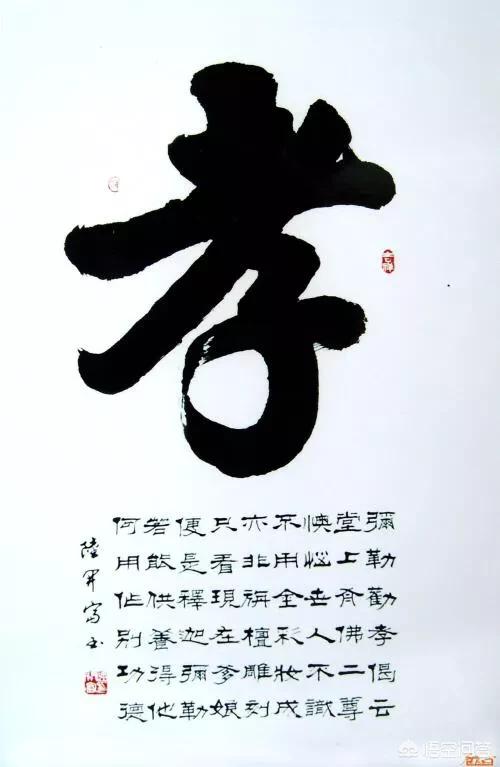 孝
彌勒勸孝偈云
堂上有佛二尊
懊惱世人不識
不用金彩妝成
亦非旃檀雕刻
只看現在爹娘
便是釋迦彌勒
若能供養得他
何用作別功德
陸
悟空问答